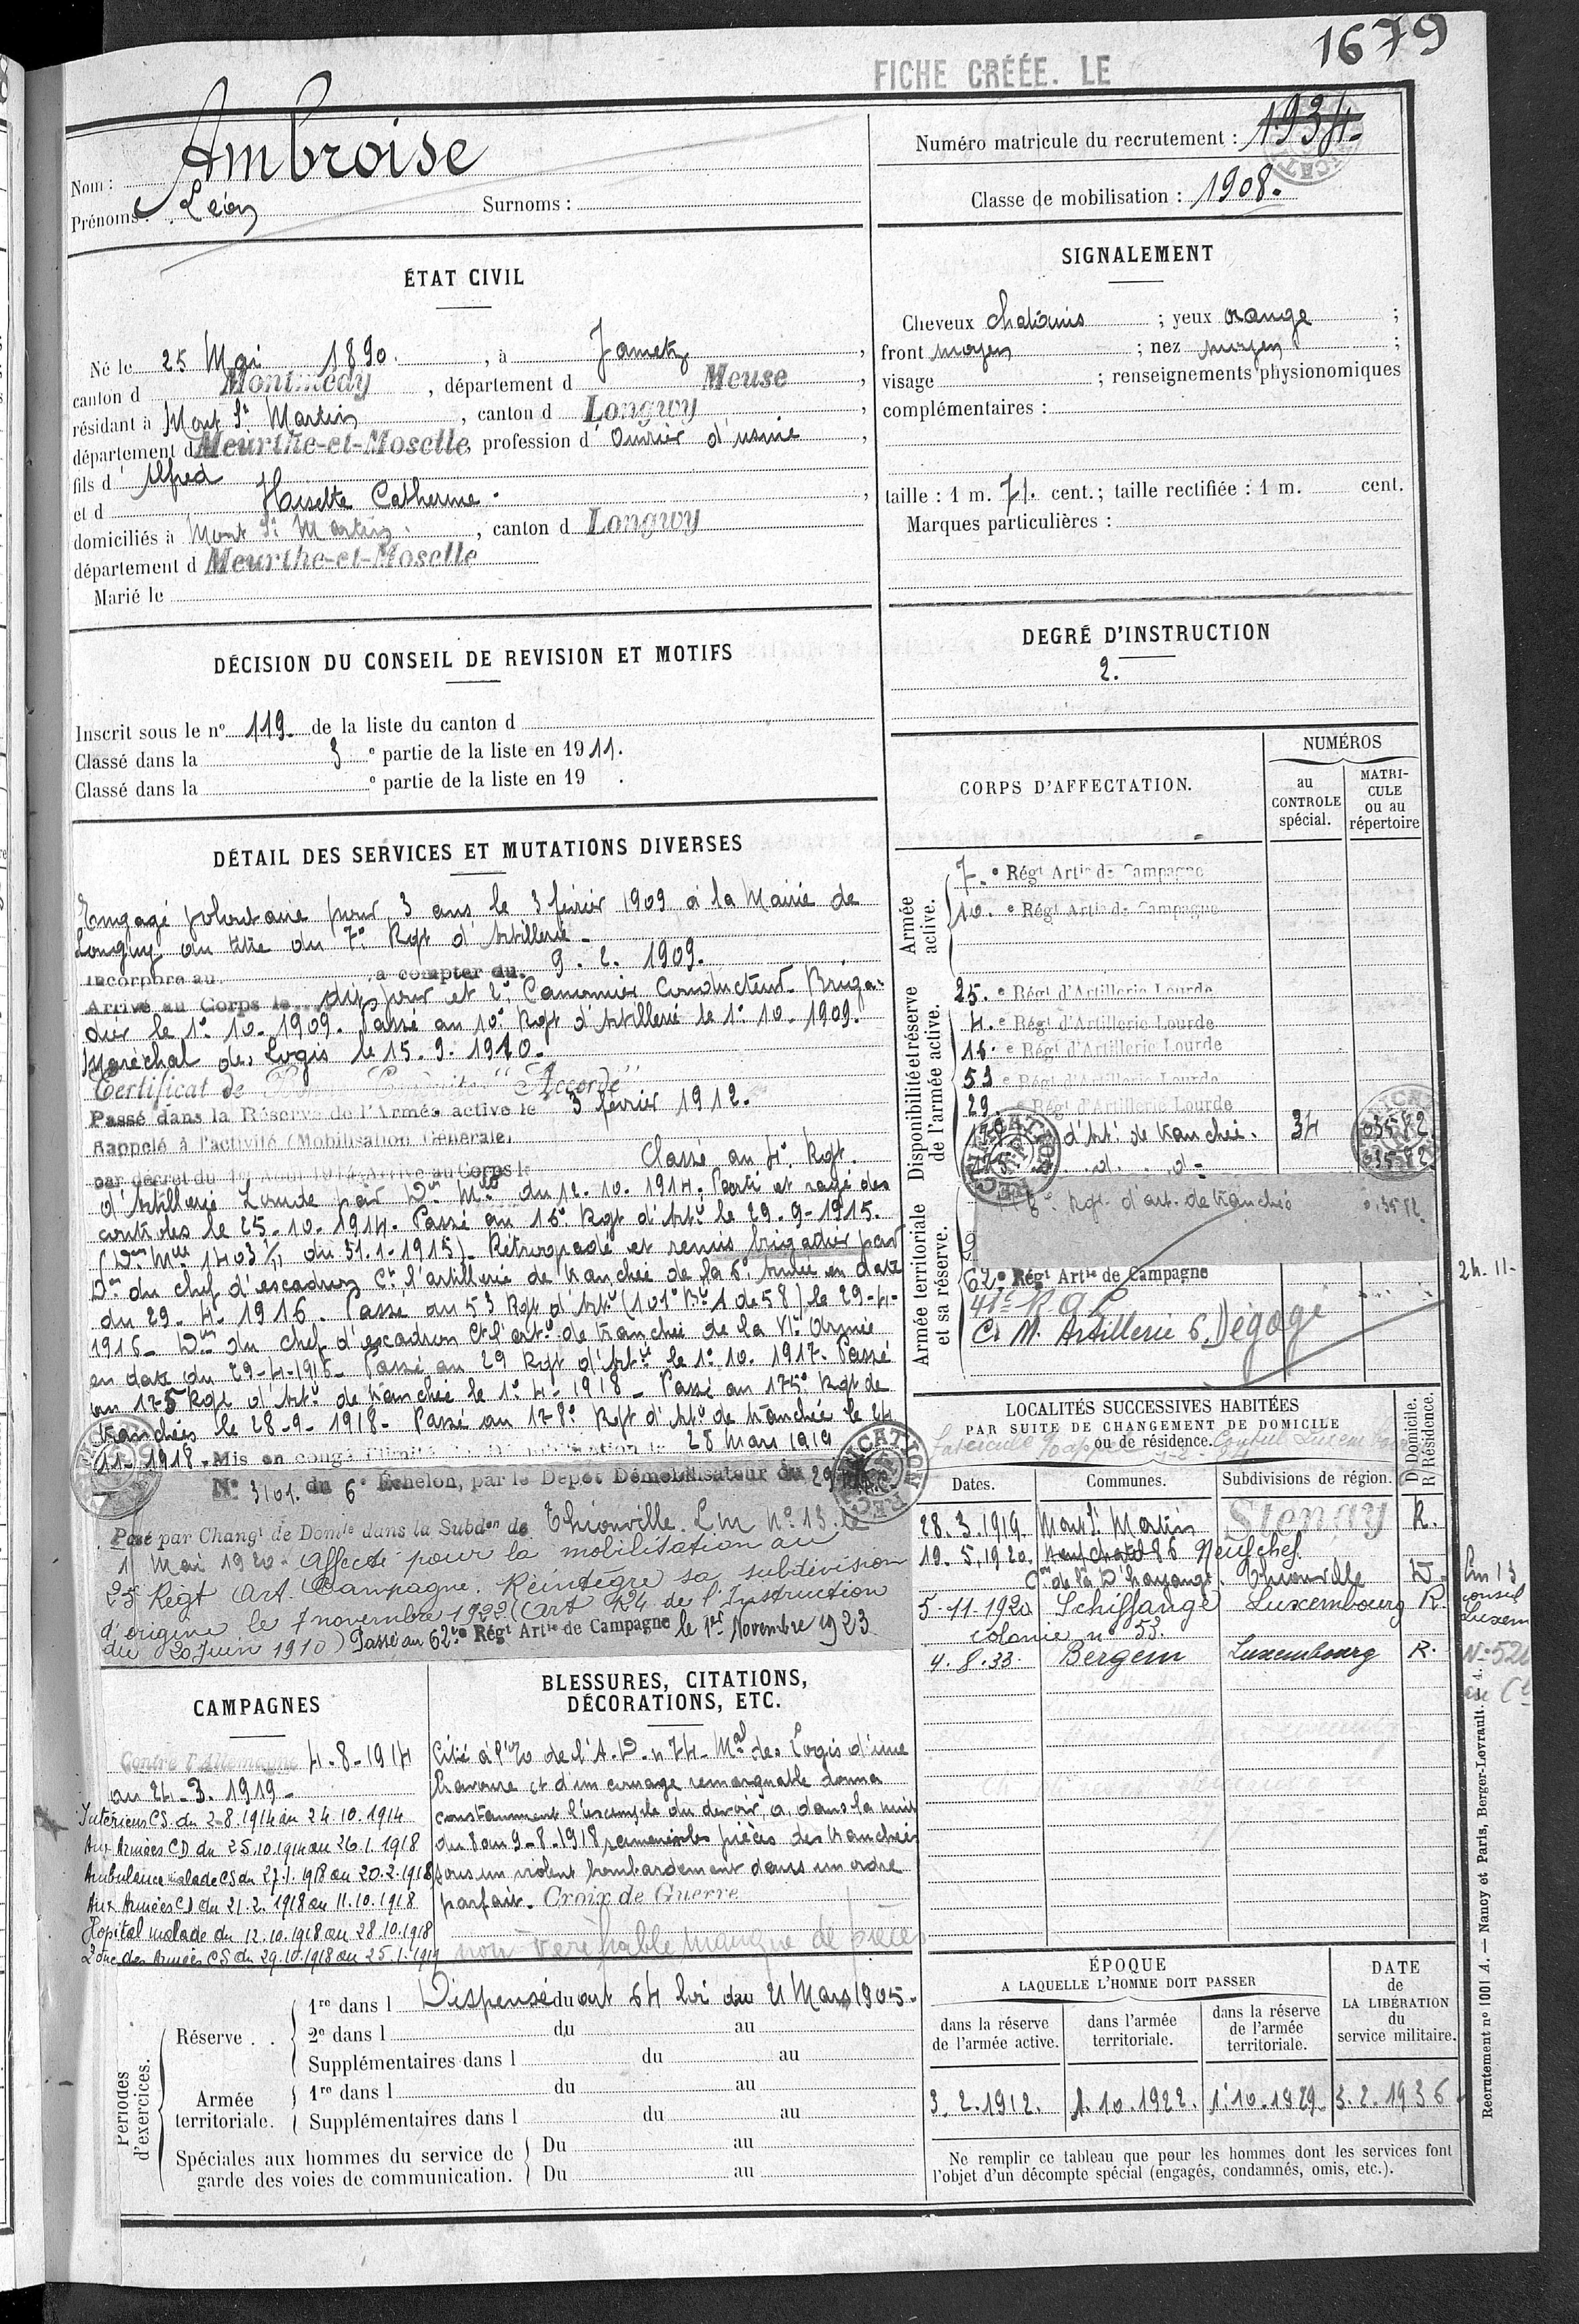 1679
FICHE CRÉÉE. LE
Nom : Ambroise
Prénoms : Léon Surnoms :
Numéro matricule du recrutement : 1934.
Classe de mobilisation : 1908.
ÉTAT CIVIL
Né le 25 Mai 1890. , à Jametz ,
canton d Montmédy , département d Meuse ,
résidant à Mont St Martin , canton d Longwy ,
département d Meurthe-et-Moselle, profession d' Ouvrier d'usine ,
fils d' Alfred
et d Husette Catherine. ,
domiciliés à Mont St Martin. , canton d Longwy
département d Meurthe-et-Moselle
Marié le
SIGNALEMENT
Cheveux chatains ; yeux orange ;
front moyen ; nez moyen ;
visage ; renseignements physionomiques
complémentaires :
taille : 1 m. 71. cent.; taille rectifiée : 1 m. cent.
Marques particulières :
DÉCISION DU CONSEIL DE REVISION ET MOTIFS
Inscrit sous le no 119. de la liste du canton d
Classé dans la 3 e partie de la liste en 1911.
Classé dans la e partie de la liste en 19 .
DEGRÉ D'INSTRUCTION
2.
DÉTAIL DES SERVICES ET MUTATIONS DIVERSES
Engagé volontaire pour 3 ans le 3 février 1909 à la Mairie de
Longwy au titre du 7e Rgt d'Artillerie.
Incorporé au à compter du 9. 2. 1909.
Arrivé au Corps le dit jour et 2e Canonnier Conducteur. Briga-
dier le 1er 10. 1909. Passé au 10e Rgt d'Artillerie le 1er 10. 1909.
Maréchal des Logis le 15. 9. 1910.
Certificat de Bonne Conduite "Accordé"
Passé dans la Réserve de l'Armée active le 3 février 1912.
Rappelé à l'activité (Mobilisation Générale)
par décret du 1er Août 1914. Arrivé au Corps le Classé au 4e Rgt.
d'Artillerie Lourde par Don Mlle du 12. 10. 1914; Parti et rayé des
contrôles le 25. 10. 1914. Passé au 16e Rgt d'Artie le 29. 9. 1915.
(Don Mlle 1403 1/11 du 31. 1. 1915). Rétrogradé et remis brigadier par
Don du chef d'escadron Ct l'artillerie de tranchée de la 6e Armée en date
du 29. 4. 1916. Passé au 53 Rgt d'Artie (101e Bie 1 de 58) le 29. 4.
1916. Don du chef d'escadron Ct l'artie de tranchée de la VIe Armée
en date du 29-4-1916. Passé au 29 Rgt d'Artie le 1er 10. 1917. Passé
au 175 Rgt d'Artie de tranchée le 1er 4. 1918. Passé au 175e Rgt de
tranchées le 28-9-1918. Passé au 178e Rgt d'Artie de tranchée le 24
11. 1918. Mis en congé illimité de démobilisation le 28 Mars 1919
No 3101. du 6e Échelon, par le Dépôt Démobilisateur du 29
Passé par Changt de Domile dans la Subdon de Thionville. Lm No 13. le
1 Mai 1920. Affecté pour la mobilisation au
25 Régt Art. Campagne. Réintégré sa subdivision
d'origine le 7 novembre 1922 (Art R4 de l'Instruction
du 20 Juin 1910) Passé au 62e Régt Artie de Campagne le 1er Novembre 1923
CORPS D'AFFECTATION.
NUMÉROS
au CONTROLE spécial.
MATRI-CULE ou au répertoire
Armée active.
7. e Régt Artie de Campagne
10. e Régt Artie de Campagne
Disponibilité et réserve de l'armée active.
25. e Régt d'Artillerie Lourde
4. e Régt d'Artillerie Lourde
16. e Régt d'Artillerie Lourde
53 e Régt d'Artillerie Lourde
29. e Régt d'Artillerie Lourde
d'Art. de tranchée. 34
175 d. d.
Armée territoriale et sa réserve.
Rgt. d'art. de tranchée
62e Régt Artie de Campagne
Ct M. Artillerie 6. Dégagé
24. 11.
LOCALITÉS SUCCESSIVES HABITÉES
PAR SUITE DE CHANGEMENT DE DOMICILE
ou de résidence.
D Domicile. R Résidence.
Dates. Communes. Subdivisions de région.
28. 3. 1919. Mont St Martin Stenay R.
19. 5. 1920. 86 Neufchef.
de la D'hayange. Thionville D.
5-11-1920 Schifflange Luxembourg R.
Colonie no 53.
4. 8. 33. Bergem Luxembourg R.
Lm 13
consul
Luxem
No 520
CAMPAGNES
Contre l'Allemagne 4-8-1914
au 24-3. 1919.
Intérieur CS. du 2-8. 1914 au 24. 10. 1914
Aux Armées CD du 25.10.1914 au 26.1. 1918
Ambulance malade CS du 27.1. 1918 au 20.2.1918
Aux Armées CD du 21.2. 1918 au 11.10.1918
Hopital malade du 12.10.1918 au 28.10.1918
Zone des Armées CS du 29.10.1918 au 25.1.1919
BLESSURES, CITATIONS,
DÉCORATIONS, ETC.
Cité à l'o/ de l'A. D. n 74. Mal des Logis d'une
bravoure et d'un courage remarquable donna
constamment l'exemple du devoir, a, dans la nuit
du 8 au 9-8-1918 ramené les pièces de tranchées
sous un violent bombardement dans un ordre
parfait. Croix de Guerre
non vérifiable manque de pièces
Périodes d'exercices.
Réserve . .
1re dans l Dispensé du art 64 loi du 21 Mars 1905.
2e dans l du au
Supplémentaires dans l du au
Armée territoriale.
1re dans l du au
Supplémentaires dans l du au
Spéciales aux hommes du service de
garde des voies de communication.
Du au
Du au
ÉPOQUE
A LAQUELLE L'HOMME DOIT PASSER
dans la réserve de l'armée active.
dans l'armée territoriale.
dans la réserve de l'armée territoriale.
DATE de LA LIBÉRATION du service militaire.
3. 2. 1912. 1. 10. 1922. 1. 10. 1929. 3. 2. 1936
Ne remplir ce tableau que pour les hommes dont les services font
l'objet d'un décompte spécial (engagés, condamnés, omis, etc.).
Recrutement no 1001 A. — Nancy et Paris, Berger-Levrault.